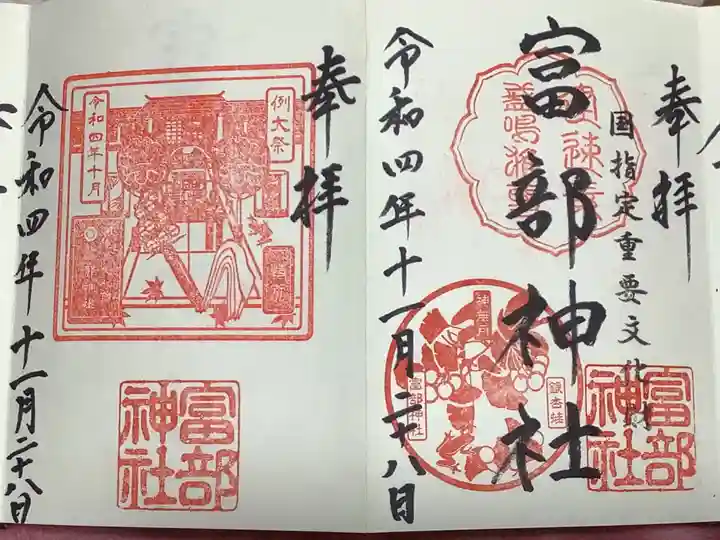 奉拝
国指定重要文化財
富部神社
令和四年十一月二十八日
神無月
銀杏結
富部神社
富部神社
奉拝
例大祭
令和四年十月
富部神社
令和四年十一月二十八日